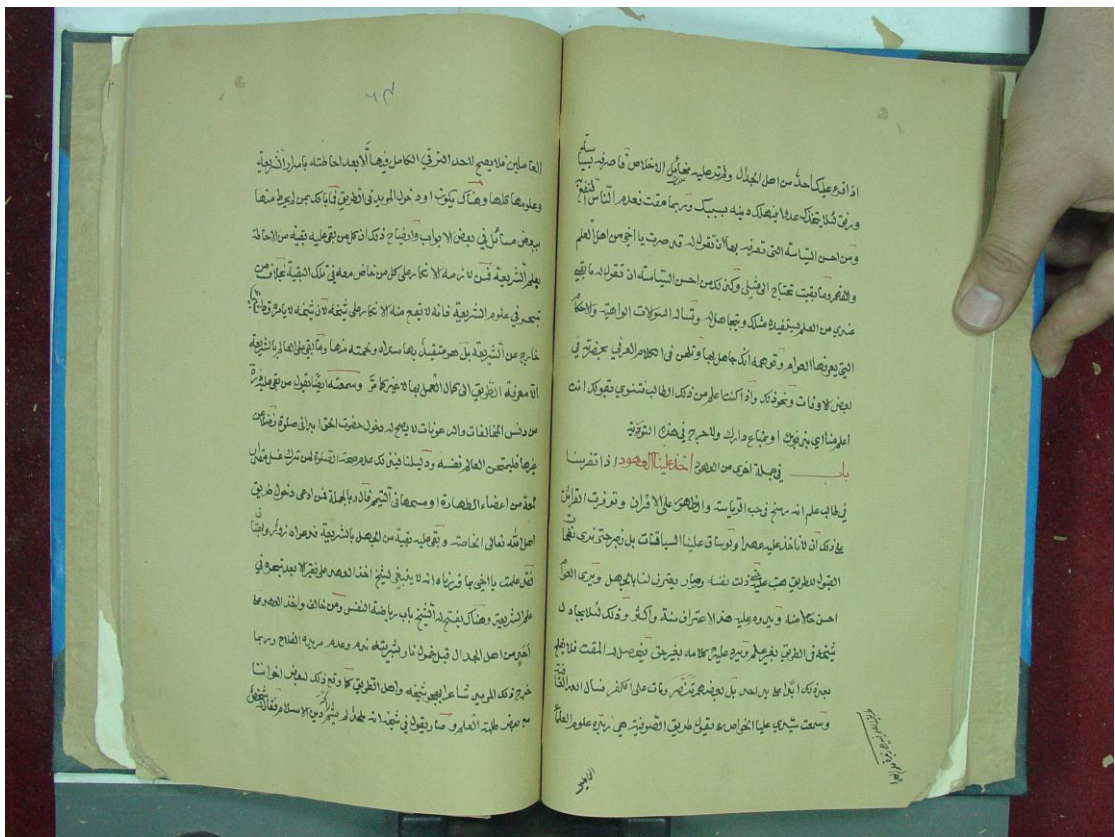 اذا قدم عليك احد من اهل الجدال ولم تر عليه مخائل الاخلاص فاصرفه بسياسة
ورفق لئلا يتخذك عدوا فيهلك دينه بسببك وربما مقت فعدم الناس النفع
ومن احسن السياسة التي تصرفه بها ان تقول له قد صرت يا اخي من اهل العلم
والفهم وما بقيت تحتاج الى مثلي وكذلك من احسن السياسة ان تقول له ما بقي
عندي من العلم يستفيده مثلك ويتجاهل له وتساله السؤلات الواهية والاحكام
التي يعرفها العوام وتوهمه انك جاهل بها وتلحن في الكلام العرفي بحضرته في
بعض الاوقات ونحو ذلك واذا كنت اعلم من ذلك الطالب فتنوي بقولك انت
اعلم منا اي بنربوتك او بمتاع دارك ولا حرج في هذه التورية
باب في جملة اخرى من العهود اخذ علينا العهود اذا تفرسنا
في طالب علم انه رسخ في حب الرياسة والظهور على الاقران وتوفرت القرائن
في ذلك ان لا ناخذ عليه عهدا ولو ساق علينا السياقات بل نصبر حتى نرى نفحات
القبول للطريق هبت عليه وذلت نفسه وصار يعترف لنا بالجهل ويرى العوام
احسن حالا منه ويمر وعليه هذا الاعتراف سنة واكثر وذلك لئلا يجادل
شيخه في الطريق بغير علم ويرد عليه كلامه بغير حق فيحصل له المقت فلا يفلح
بعد ذلك ابدا على يد احد بل بعضهم تنصر ومات على الكفر نسال الله العافية
وسمعت سيدي عليا الخواص يقول طريق الصوفية هي زبدة علوم العلماء
العاملين
العاملين فلا يصح لاحد الترقي الكامل فيها الا بعد احاطته باسرار الشريعة
وعلومها كلها وهناك يكون او دخول المريد في الطريق فاياك بمن لم يحط منها
ببعض مسائل في بعض الابواب وايضاح ذلك ان كل من بقي عليه بقية من الاحاطة
بعلم الشريعة فمن لازمه الانكار على كل من خاض معه في تلك البقية بخلاف من
تبحر في علوم الشريعة فانه لا يقع منه الانكار على شيخه لان شيخه لا يامره قط بشيء
خارج عن الشريعة بل هو متقيد بها سداه ولحمته منها وما بقي على العالم بالشريعة
الا معرفة الطريق الى كمال العمل بها لا غير كما مر وسمعته ايضا يقول من بقي عليه ذرة
من دنس المخالفات والرعونات لا يصح له دخول حضرت الحق ابدا في صلوة فضلا عن
غيرها فليمتحن العالم نفسه ودليلنا في ذلك عدم صحة الصلوة لمن ترك غسل مقدار
لمعة من اعضاء الطهارة او مسحها في التيمم قال وبالجملة فمن ادعى دخول طريق
اهل الله تعالى الخاصة وبقي عليه بقية من الجهل بالشريعة فدعواه زور وبهتان
فقد علمت يا اخي بما قررناه انه لا ينبغي لشيخ اخذ العهد على فقير الا بعد تبحره في
علم الشريعة وهناك يفتح له الشيخ باب رياضة النفس ومن خالف واخذ العهد على
احد من اهل الجدال قبل خمود نار بشريته ندم وعدم مريده الفلاح وربما
خرج ذلك المريد شاعرا يهجو شيخه واهل الطريق كما وقع ذلك لبعض اخواننا
مع بعض طلبة العلم وصار يقول في شيخه انه ملحد لم يشم رائحة دين الاسلام فقال له شخص